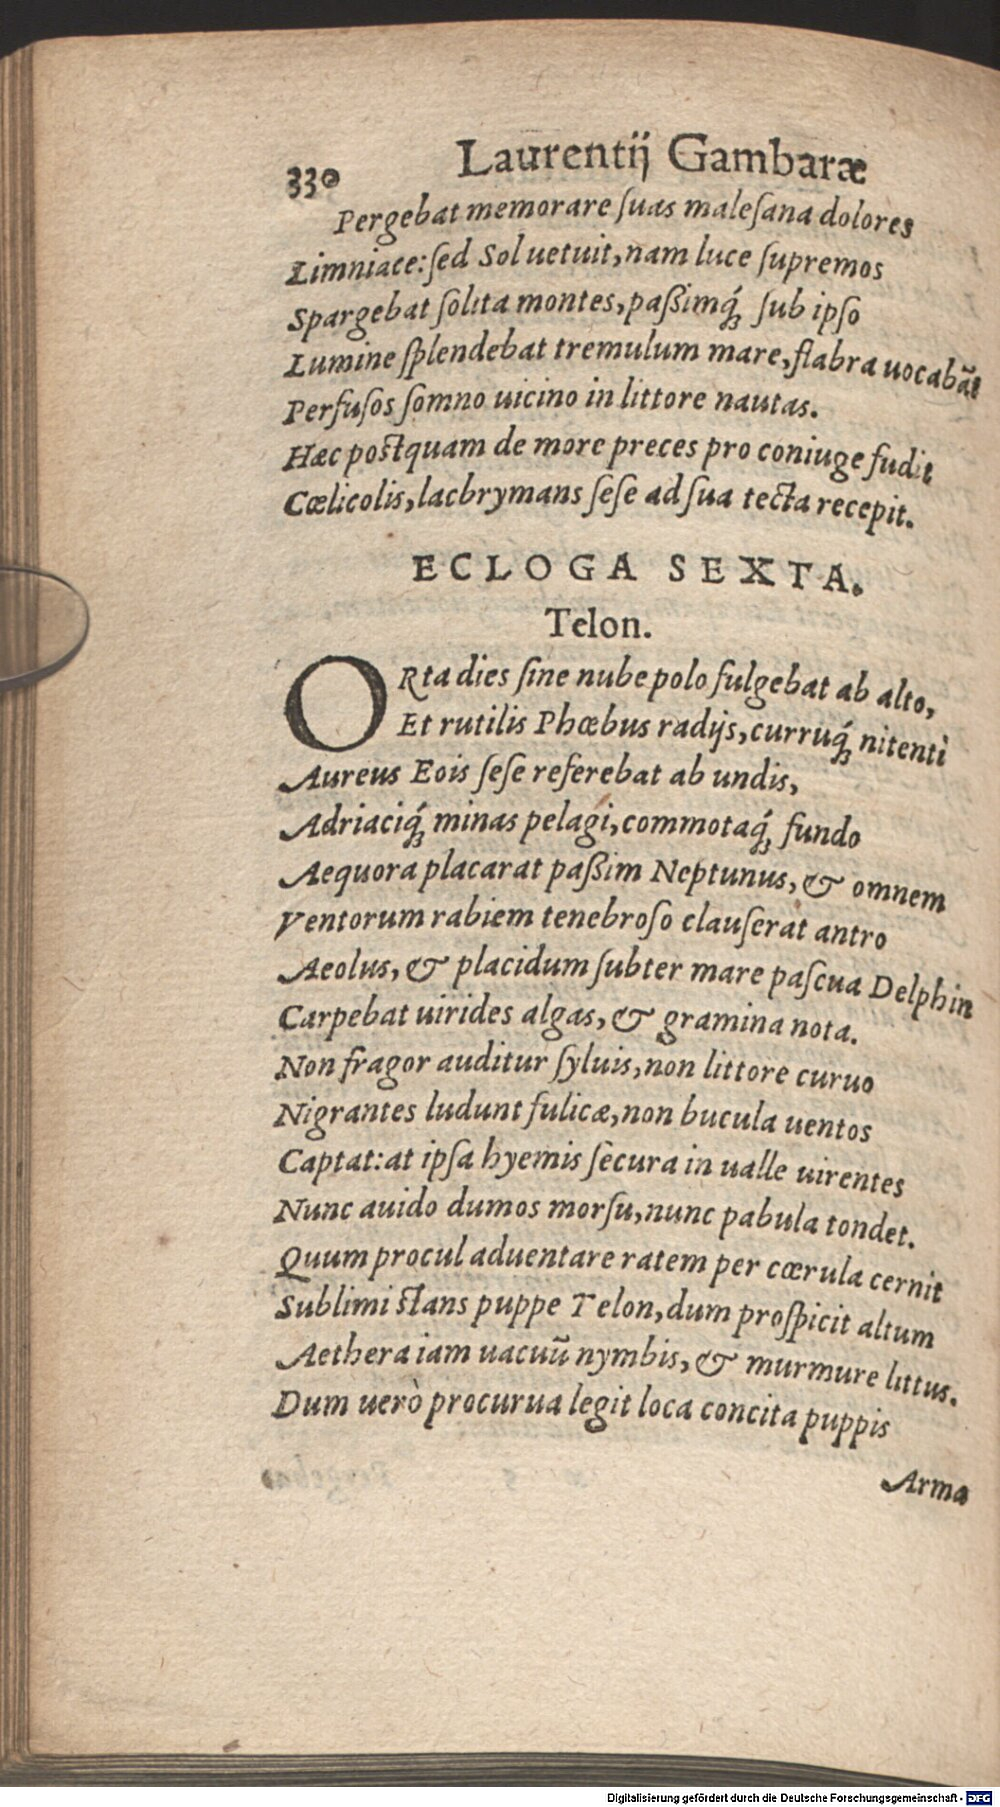 330 Laurentij Gambaræ
Pergebat memorare ſuas maleſana dolores
Limniace: ſed Sol uetuit, nam luce ſupremos
Spargebat ſolita montes, paßimq́; ſub ipſo
Lumine ſplendebat tremulum mare, flabra uocabãt
Perfuſos ſomno uicino in littore nautas.
Hæc postquam de more preces pro coniuge fudit
Cœlicolis, lachrymans ſeſe ad ſua tecta recepit.
ECLOGA SEXTA.
Telon.
ORta dies ſine nube polo fulgebat ab alto,
Et rutilis Phœbus radijs, curruq́; nitenti
Aureus Eois ſeſe referebat ab undis,
Adriaciq́; minas pelagi, commotaq́; fundo
Aequora placarat paßim Neptunus, & omnem
Ventorum rabiem tenebroſo clauſerat antro
Aeolus, & placidum ſubter mare paſcua Delphin
Carpebat uirides algas, & gramina nota.
Non fragor auditur ſyluis, non littore curuo
Nigrantes ludunt fulicæ, non bucula uentos
Captat: at ipſa hyemis ſecura in ualle uirentes
Nunc auido dumos morſu, nunc pabula tondet.
Quum procul aduentare ratem per cœrula cernit
Sublimi stans puppe Telon, dum proſpicit altum
Aethera iam uacuũ nymbis, & murmure littus.
Dum uerò procurua legit loca concita puppis
Arma
Digitalisierung gefördert durch die Deutsche Forschungsgemeinschaft - DFG